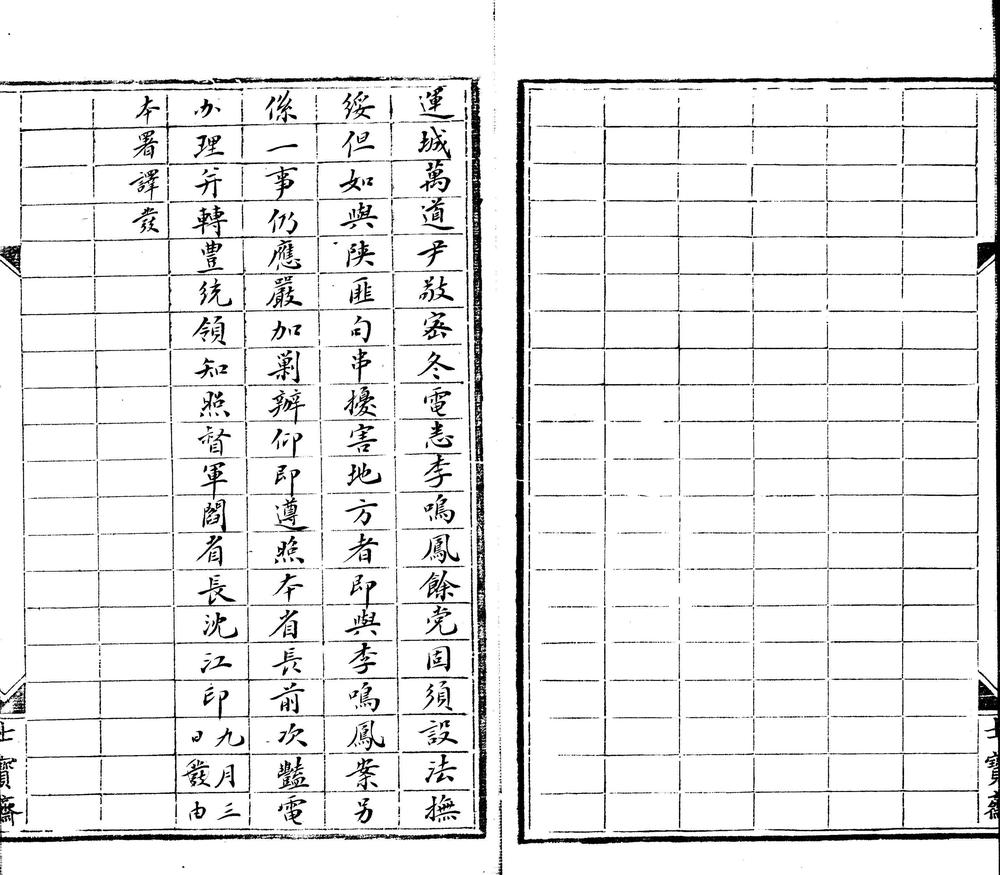 運城萬道尹敬密冬電悉李鳴鳳餘党固須設法撫
綏但如與陕匪句串擾害地方者即與李鳴鳳案另
係一事仍應嚴加剿辦仰即遵照本省長前次豔電
办理并轉豊統領知照督軍閻省長沈江印九月三日發由
本署譯發
寶齋
寶齋